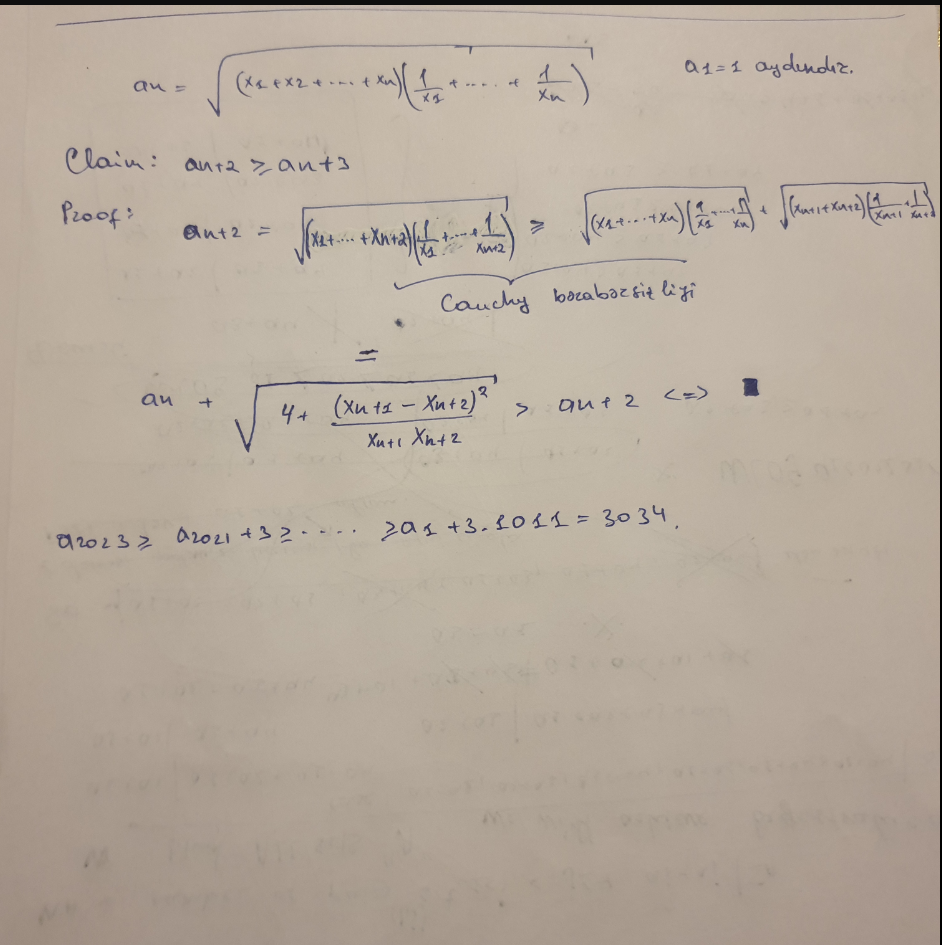 an = √((x1+x2+....+xn)(1/x1+.....+1/xn)) a1=1 aydındız.
Claim: an+2 ≥ an+3
Proof: an+2 = √((x1+....+xn+2)(1/x1+....+1/xn+2)) ≥ √((x1+....+xn)(1/x1+....+1/xn)) + √((xn+1+xn+2)(1/xn+1+1/xn+2))
Cauchy bərabərsizliyi
=
an + √(4+(xn+1-xn+2)²/(xn+1 xn+2)) > an+2 <=> ■
a2023≥ a2021+3≥..... ≥a1+3.1011=3034.